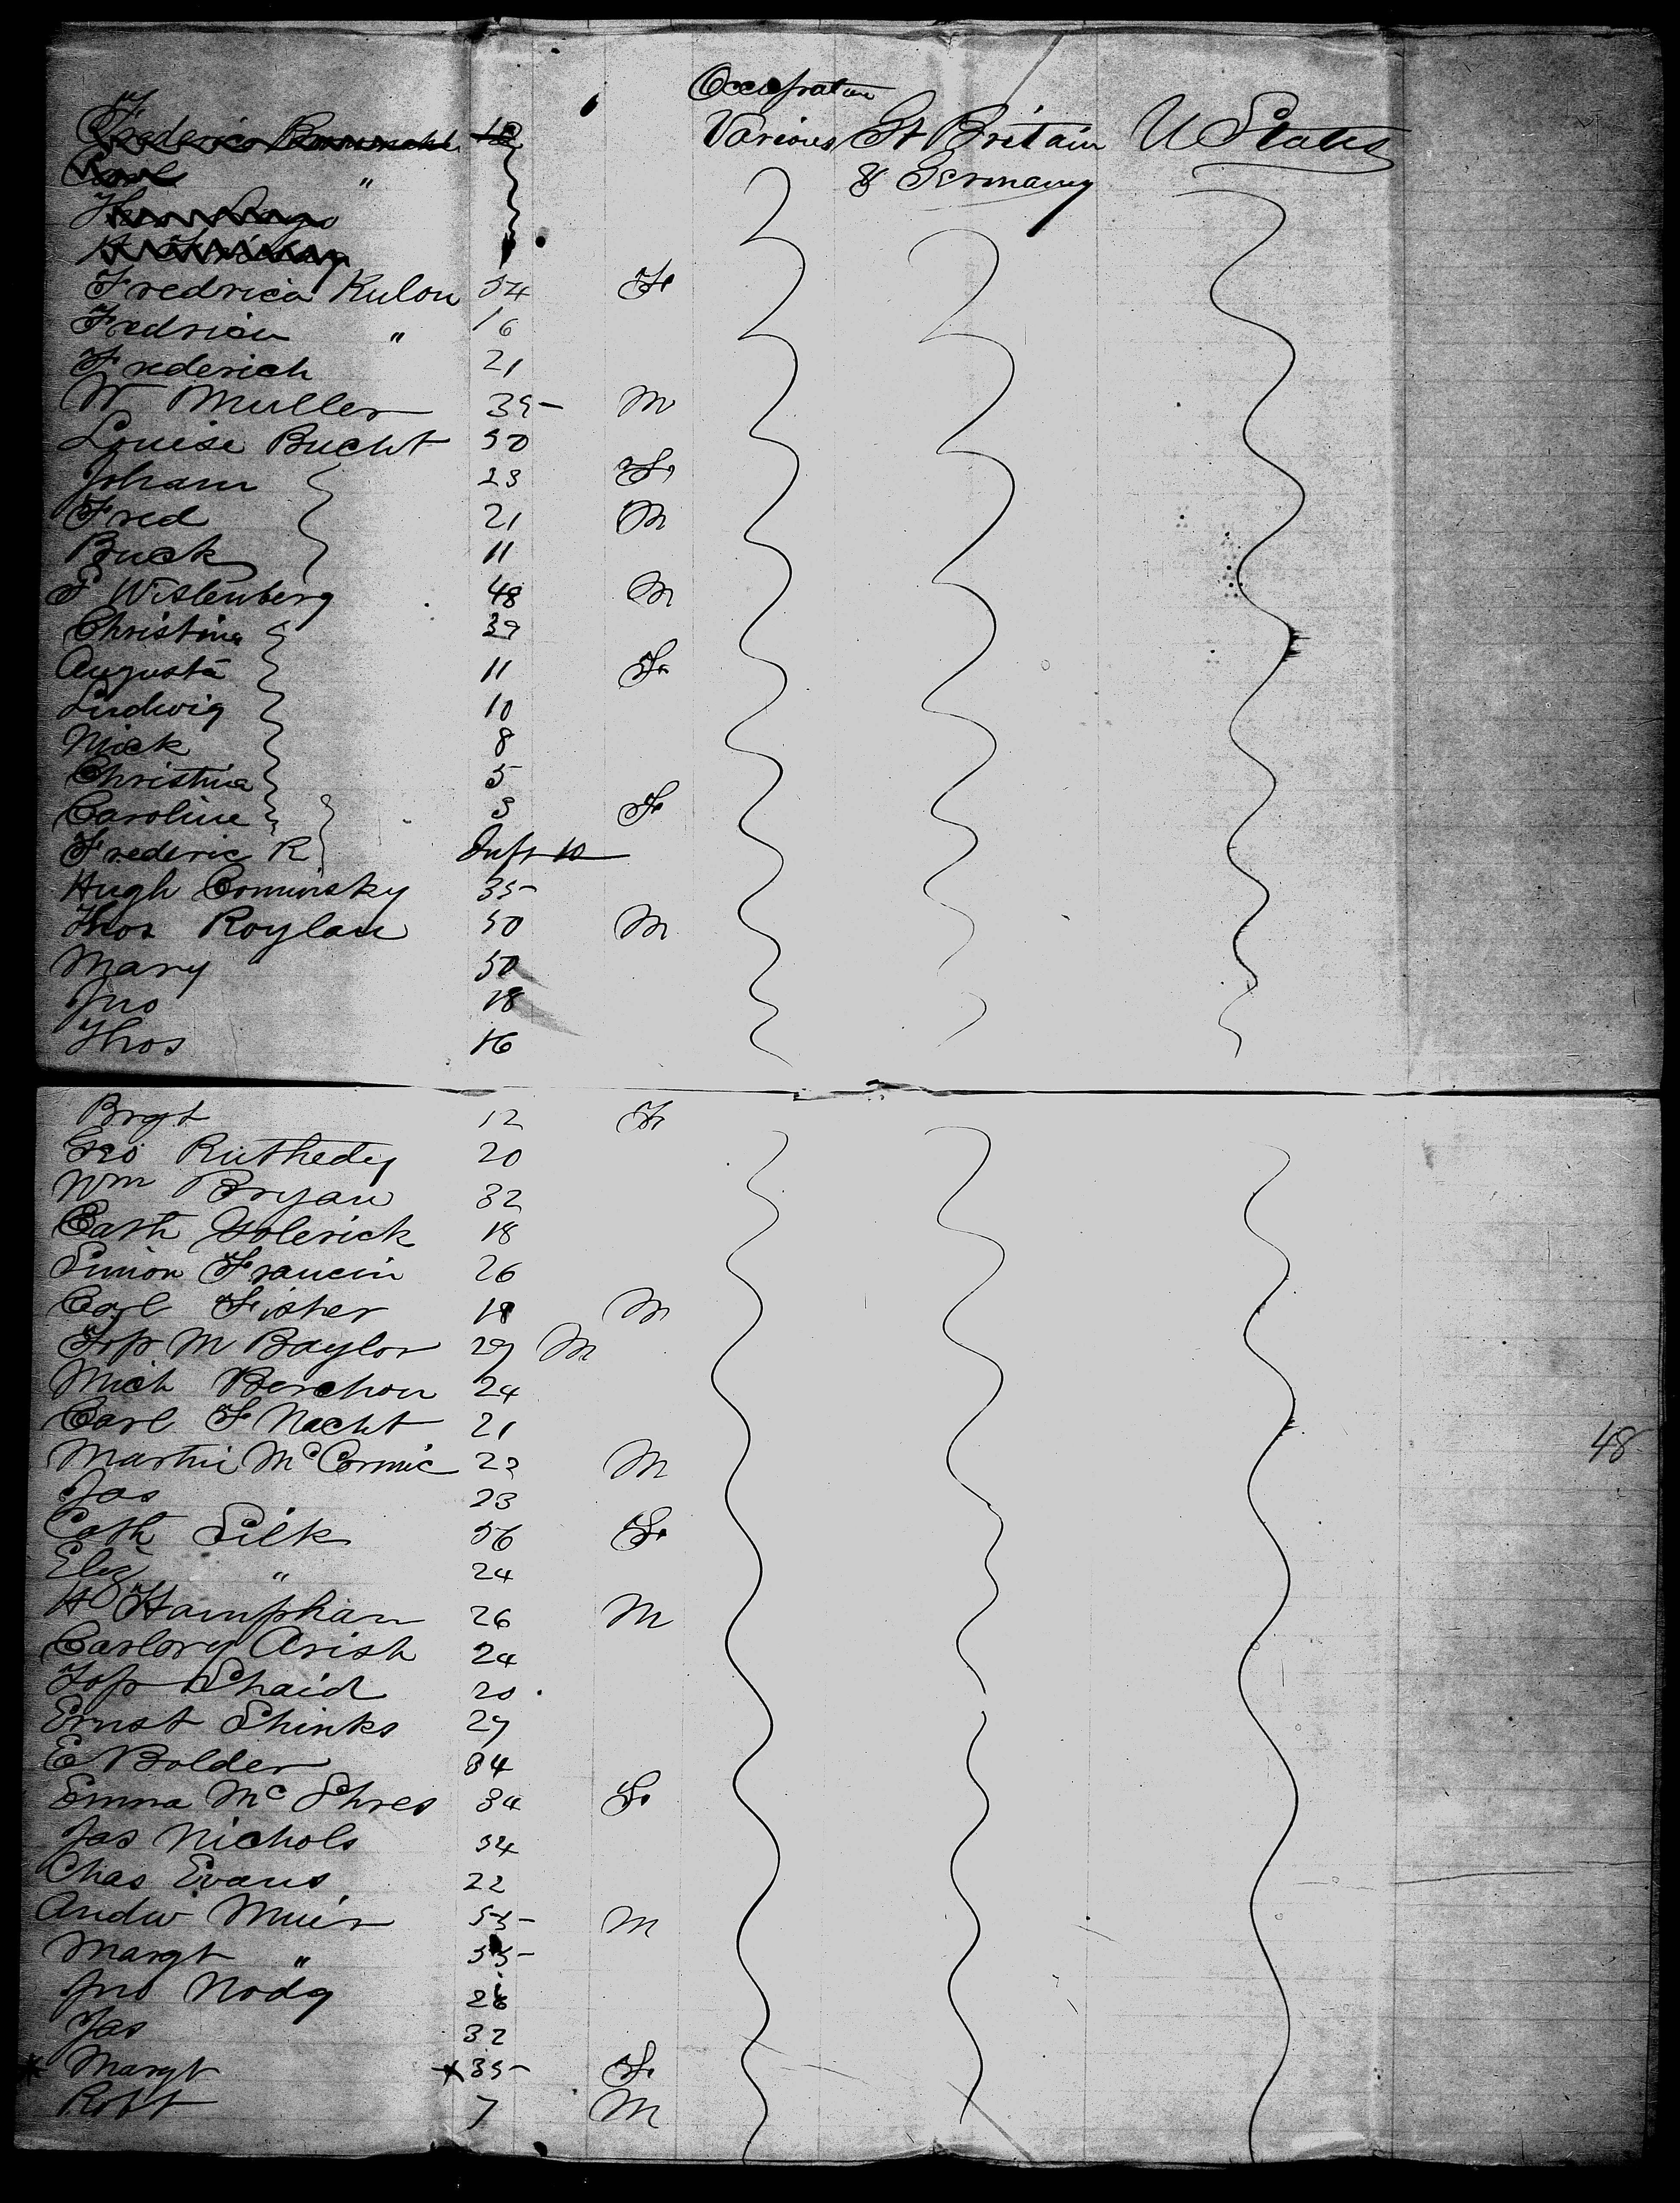 Occupation
Various Gt Britain U States
& Germany
Carl "
Fredrica Kulon 54 F
Fredrica " 16
Frederich 21
W Muller 35 M
Louise Bucht 50
Johann 23 F
Fred 21 M
Buck 11
F Wistenberg 48 M
Christina 39
Augusta 11 F
Ludwig 10
Nick 8
Christina 5
Caroline 3 F
Frederic R Inft 10
Hugh Cominsky 35
Thos Roylan 50 M
Mary 50
Jno 18
Thos 16
Brgt 12 F
Geo Ruthedy 20
Wm Bryan 32
Cath Golerick 18
Simon Francin 26
Carl Fisher 18 M
Jos M Baylor 29 M
Mich Berchon 24
Carl F Nacht 21
Martin McCormic 22 M
Jas 23
Cath Silk 56 F
Eliz " 24
H Hampham 26 M
Carlory Arish 24
Jos Shaid 20
Ernst Shinks 27
E Bolder 34
Emma Mc Shres 34 F
Jas Nichols 34
Chas Evans 22
Andw Muir 55 M
Margt " 55
Jno Nody 26
Jas 32
x Margt x 35 F
Robt 7 M
48